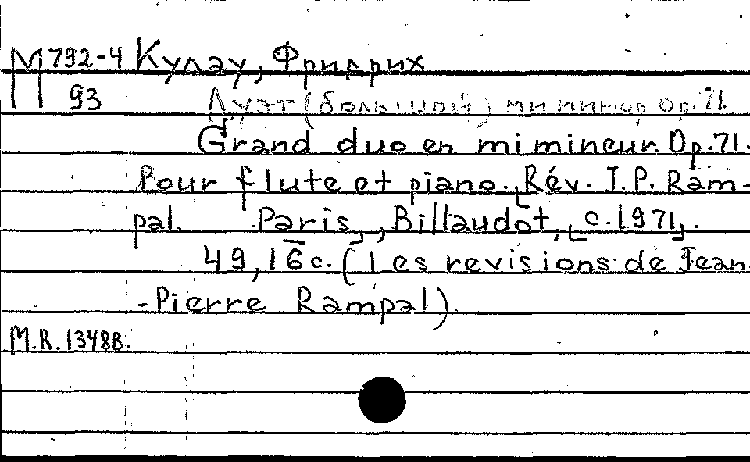 М 792-4 Кулау, Фридрих
93 Дуэт (большой) ми минор Op. 71
Grand duo en mi mineur. Op. 71.
Pour flute et piano. [Rév. J. P. Ram-
pal. Paris], Billaudot, [c. 1971].
49, 16 c. (Les revisions de Jean-
-Pierre Rampal).
M.R. 1348B.